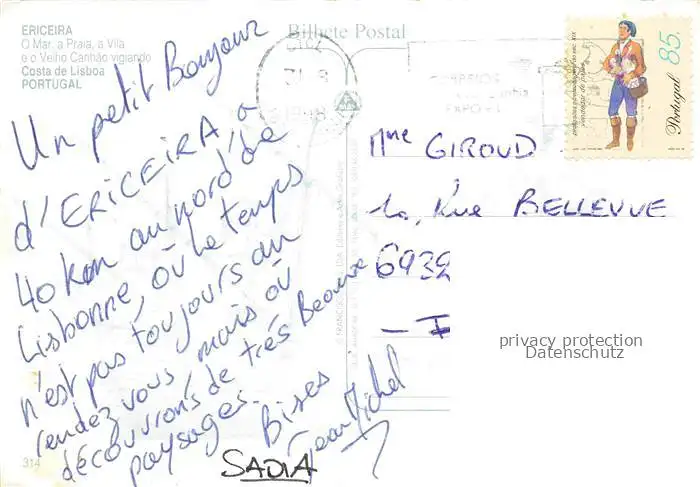 ERICEIRA
O Mar, a Praia, a Vila
e o Velho Canhão vigiando
Costa de Lisboa
PORTUGAL
Bilhete Postal
Portugal 85.
Un petit Bonjour
d'ERICEIRA, à
40 km au nord de
Lisbonne, où le temps
n'est pas toujours au
rendez vous, mais où
découvrons de très Beaux
paysages.
Bises
Jean Michel
SADIA
314
Mme GIROUD
10, Rue BELLEVUE
6932
privacy protection
Datenschutz